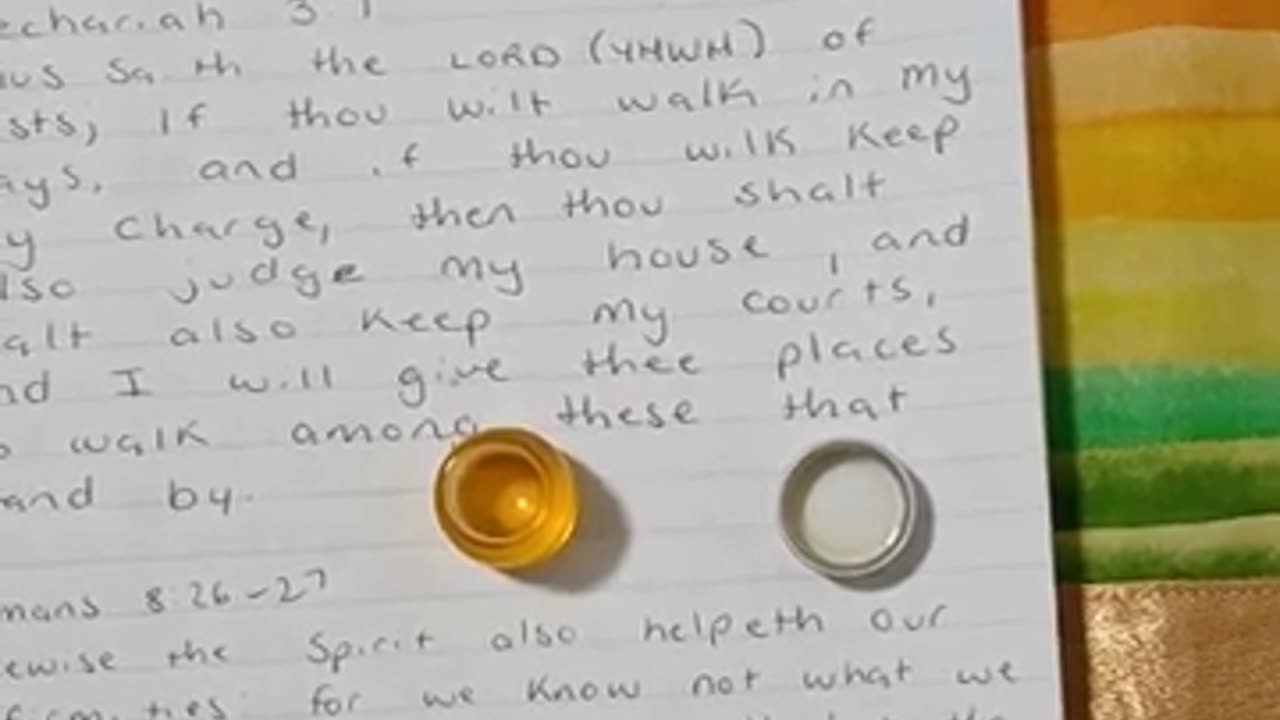 echariah 3:7
us Saith the LORD (YHWH) of
sts; If thou wilt walk in my
ays, and if thou wilk keep
y charge, then thou shalt
lso judge my house, and
alt also keep my courts,
nd I will give thee places
o walk among these that
and by.
mans 8:26-27
ewise the Spirit also helpeth our
firmities: for we know not what we